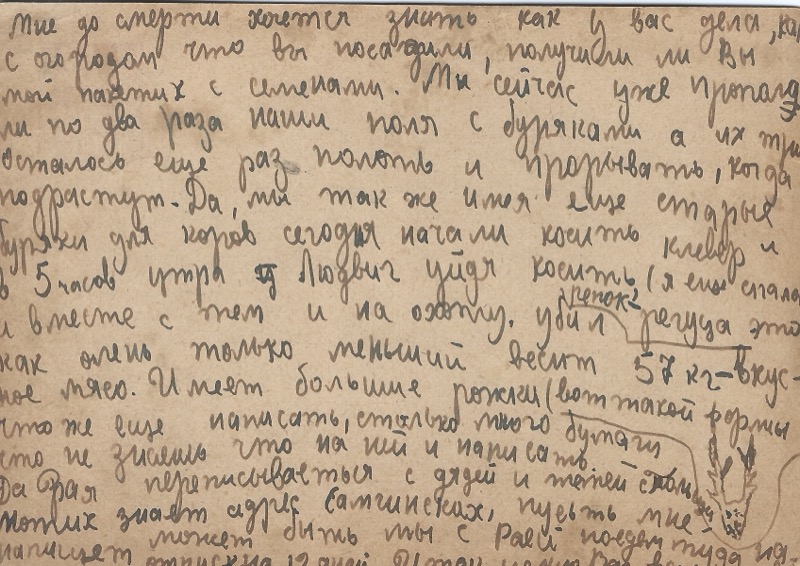 Мне до смерти хочется знать как у вас дела, как
с огородом что вы посадили, получили ли Вы
мой пакетик с семенами. Мы сейчас уже пропалы
ли по два раза наши поля с буряками а их три
осталось еще раз полоть и прорывать, когда
подрастут. Да, мы так же имея еще старые
буряки для коров сегодня начали косить клевер и
в 5 часов утра Людвиг уйдя косить (я еще спала
и вместе с тем и на охоту. убил регуца это
как олень только меньший весит 57 кг – вкус-
ное мясо. Имеет большие рожки (вот такой формы
что же еще написать, столько много бумаги
что не знаешь что на ней и написать.
Да Рая переписывается с дядей и тетей
может знает адрес Самгинских, пусть мне
напишет может быть мы с Раей поедем туда
отпуск на 12 дней.